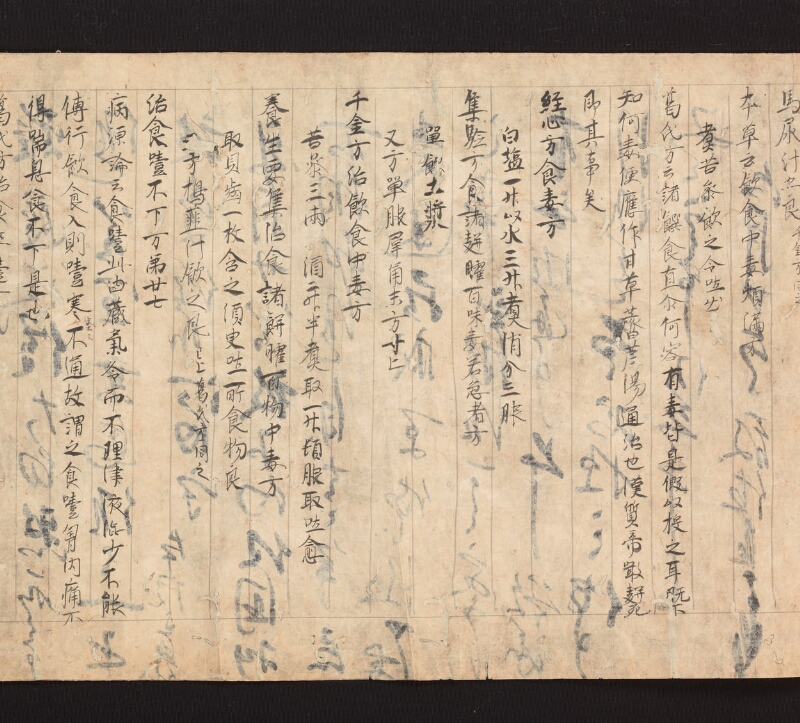 馬尿汁亦良
本草云飲食中毒煩滿方
煮苦參飲之令吐出
葛氏方云諸饌食直尓何容有毒皆是假以投之耳既不
知何毒便應作甘草薺苨湯通治也漢質帝啖餅死
即其事矣
經心方食毒方
白塩一升以水三升煮消分三服
集驗方食諸餅臛百味毒若急者方
單飲土漿
又方單服犀角末方寸匕
千金方治飲食中毒方
苦參三兩 酒二升半煮取一升頓服取吐愈
養生要集治食諸餅臛百物中毒方
取貝齒一枚含之須臾吐所食物良
又方搗韮汁飲之良 已上葛氏方同之
治食噎不下方第廿七
病源論云食噎此由藏氣冷而不理津液澁少不能
傅行飲食入則噎塞不通故謂之食噎胷内痛不
得喘息食不下是也
葛氏方治食卒噎